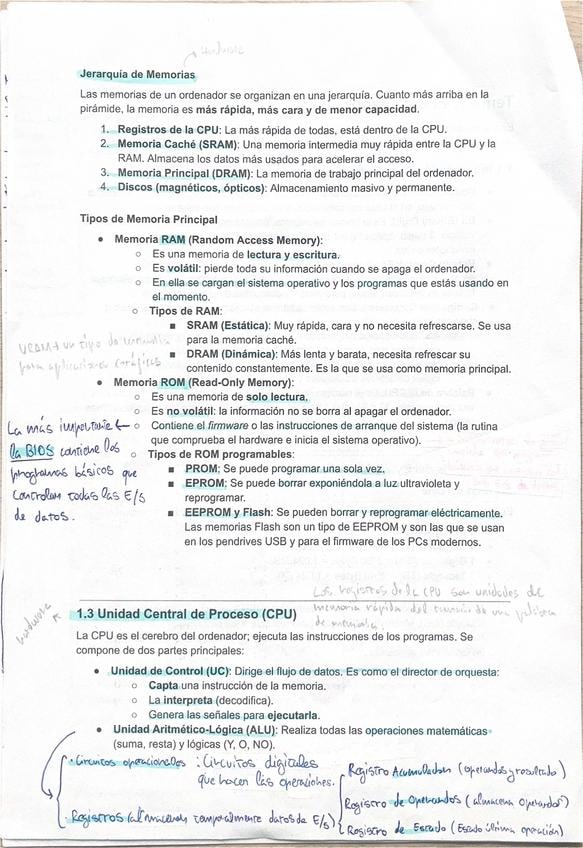 Jerarquía de Memorias
Las memorias de un ordenador se organizan en una jerarquía. Cuanto más arriba en la
pirámide, la memoria es más rápida, más cara y de menor capacidad.
1. Registros de la CPU: La más rápida de todas, está dentro de la CPU.
2. Memoria Caché (SRAM): Una memoria intermedia muy rápida entre la CPU y la
RAM. Almacena los datos más usados para acelerar el acceso.
3. Memoria Principal (DRAM): La memoria de trabajo principal del ordenador.
4. Discos (magnéticos, ópticos): Almacenamiento masivo y permanente.
Tipos de Memoria Principal
● Memoria RAM (Random Access Memory):
○ Es una memoria de lectura y escritura.
○ Es volátil: pierde toda su información cuando se apaga el ordenador.
○ En ella se cargan el sistema operativo y los programas que estás usando en
el momento.
○ Tipos de RAM:
■ SRAM (Estática): Muy rápida, cara y no necesita refrescarse. Se usa
para la memoria caché.
■ DRAM (Dinámica): Más lenta y barata, necesita refrescar su
contenido constantemente. Es la que se usa como memoria principal.
VRAM → un tipo de memoria
para aplicaciones gráficas
● Memoria ROM (Read-Only Memory):
○ Es una memoria de solo lectura.
○ Es no volátil: la información no se borra al apagar el ordenador.
○ Contiene el firmware o las instrucciones de arranque del sistema (la rutina
que comprueba el hardware e inicia el sistema operativo).
La más importante ←
la BIOS contiene los
programas básicos que
controlan todas las E/S
de datos.
○ Tipos de ROM programables:
■ PROM: Se puede programar una sola vez.
■ EPROM: Se puede borrar exponiéndola a luz ultravioleta y
reprogramar.
■ EEPROM y Flash: Se pueden borrar y reprogramar eléctricamente.
Las memorias Flash son un tipo de EEPROM y son las que se usan
en los pendrives USB y para el firmware de los PCs modernos.
Los registros de la CPU son unidades de
memoria rápida del tamaño de una palabra
de memoria.
hardware
1.3 Unidad Central de Proceso (CPU)
La CPU es el cerebro del ordenador; ejecuta las instrucciones de los programas. Se
compone de dos partes principales:
● Unidad de Control (UC): Dirige el flujo de datos. Es como el director de orquesta:
○ Capta una instrucción de la memoria.
○ La interpreta (decodifica).
○ Genera las señales para ejecutarla.
● Unidad Aritmético-Lógica (ALU): Realiza todas las operaciones matemáticas
(suma, resta) y lógicas (Y, O, NO).
· Circuitos operacionales : Circuitos digitales
que hacen las operaciones.
· Registros (almacenan temporalmente datos de E/S)
Registro Acumulador (operandos y resultado)
Registro de Operandos (almacena operandos)
Registro de Estado (Estado última operación)